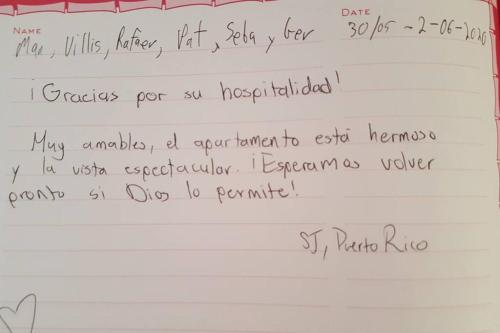 NAME
Mae, Villis, Rafaer, Pat, Seba y Ger
DATE
30/05 - 2-06-2020
¡Gracias por su hospitalidad!
Muy amables, el apartamento está hermoso
y la vista espectacular. ¡Esperamos volver
pronto si Dios lo permite!
SJ, Puerto Rico